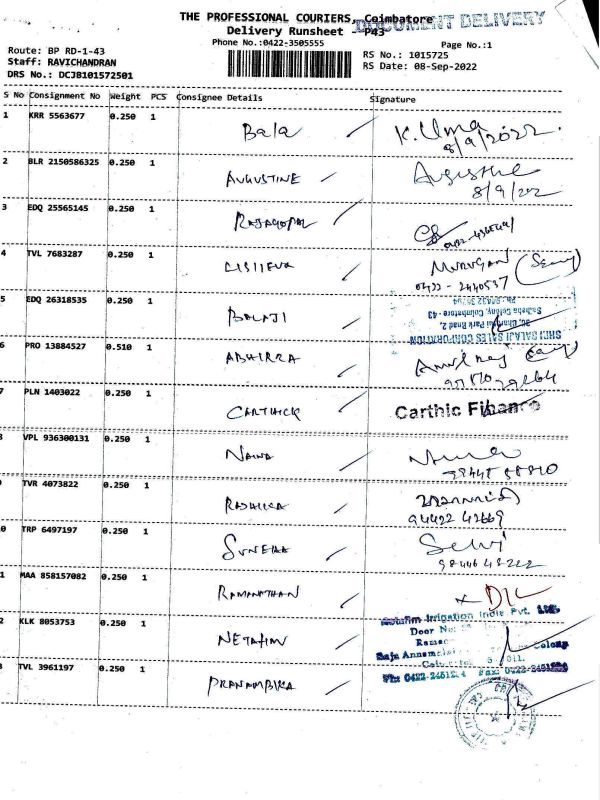 THE PROFESSIONAL COURIERS, Coimbatore
DOCUMENT DELIVERY
Delivery Runsheet - P43
Phone No.:0422-3505555
Page No.:1
Route: BP RD-1-43
RS No.: 1015725
Staff: RAVICHANDRAN
RS Date: 08-Sep-2022
DRS No.: DCJB101572501
S No Consignment No Weight PCS Consignee Details Signature
1 KRR 5563677 0.250 1 Bala K. Uma
8/9/2022.
2 BLR 2150586325 0.250 1 AUGUSTINE Augustine
8/9/202
3 EDQ 25565145 0.250 1 RAJAGOPAL
4 TVL 7683287 0.250 1 MURUGAN
0422 - 2440537
5 EDQ 26318535 0.250 1 BALAJI
SHRI BALAJI SALES CORPORATION
Park Road 2,
Saibaba Colony, Coimbatore -43
6 PRO 13884527 0.510 1 ABHIRRA
7 PLN 1403022 0.250 1 CARTHICK Carthic Finance
VPL 936300131 0.250 1 NAINA
TVR 4073822 0.250 1 RADHIKA
94422 42669
0 TRP 6497197 0.250 1 SUNEKA Selvi
98446 48222
1 MAA 858157082 0.250 1 RAMANATHAN
2 KLK 8053753 0.250 1 NETAFIM
Netafim Irrigation India Pvt. Ltd.
Door No:
Colony
Ph: 0422-2451214 Fax: 0422-
3 TVL 3961197 0.250 1 PRANAMBIKA